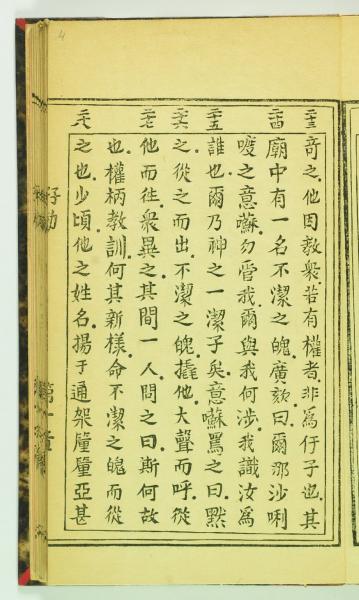 奇之他因教衆若有權者非為仔子也其
廟中有一名不潔之魄廣欬曰爾那沙唎
嗄之意囌勿管我爾與我何涉我識汝為
誰也爾乃神之一潔子矣意囌罵之曰默
之從之而出不潔之魄撬他大聲而呼從
他而往衆異之其間一人問之曰斯何故
也權柄教訓何其新樣命不潔之魄而從
之也少頃他之姓名揚于通架釐釐亞甚
二十三
二十四
二十五
二十六
二十七
二十八
第一章
4